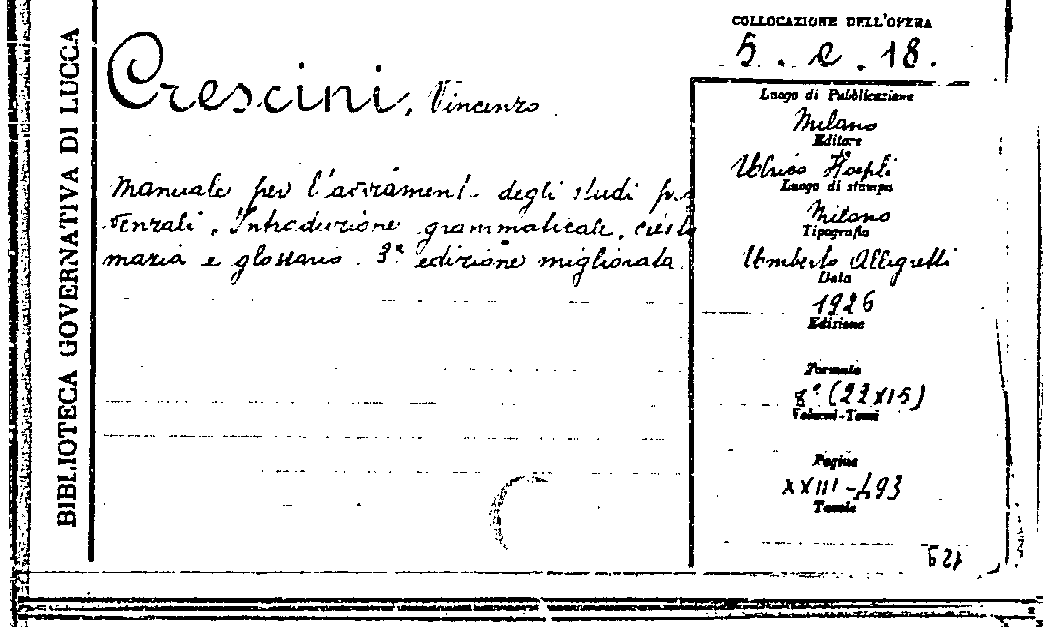 BIBLIOTECA GOVERNATIVA DI LUCCA
Crescini, Vincenzo.
Manuale per l'avviament. degli studi pro
venzali. Introduzione grammaticale, cresto
mazia e glossario. 3ª edizione migliorata
COLLOCAZIONE DELL'OPERA
5. e. 18.
Luogo di Pubblicazione
Milano
Editore
Ulrico Hoepli
Luogo di stampa
Milano
Tipografia
Umberto Allegretti
Data
1926
Edizione
Formato
8° (22x15)
Volumi-Tomi
Pagine
XXIII-493
Tavole